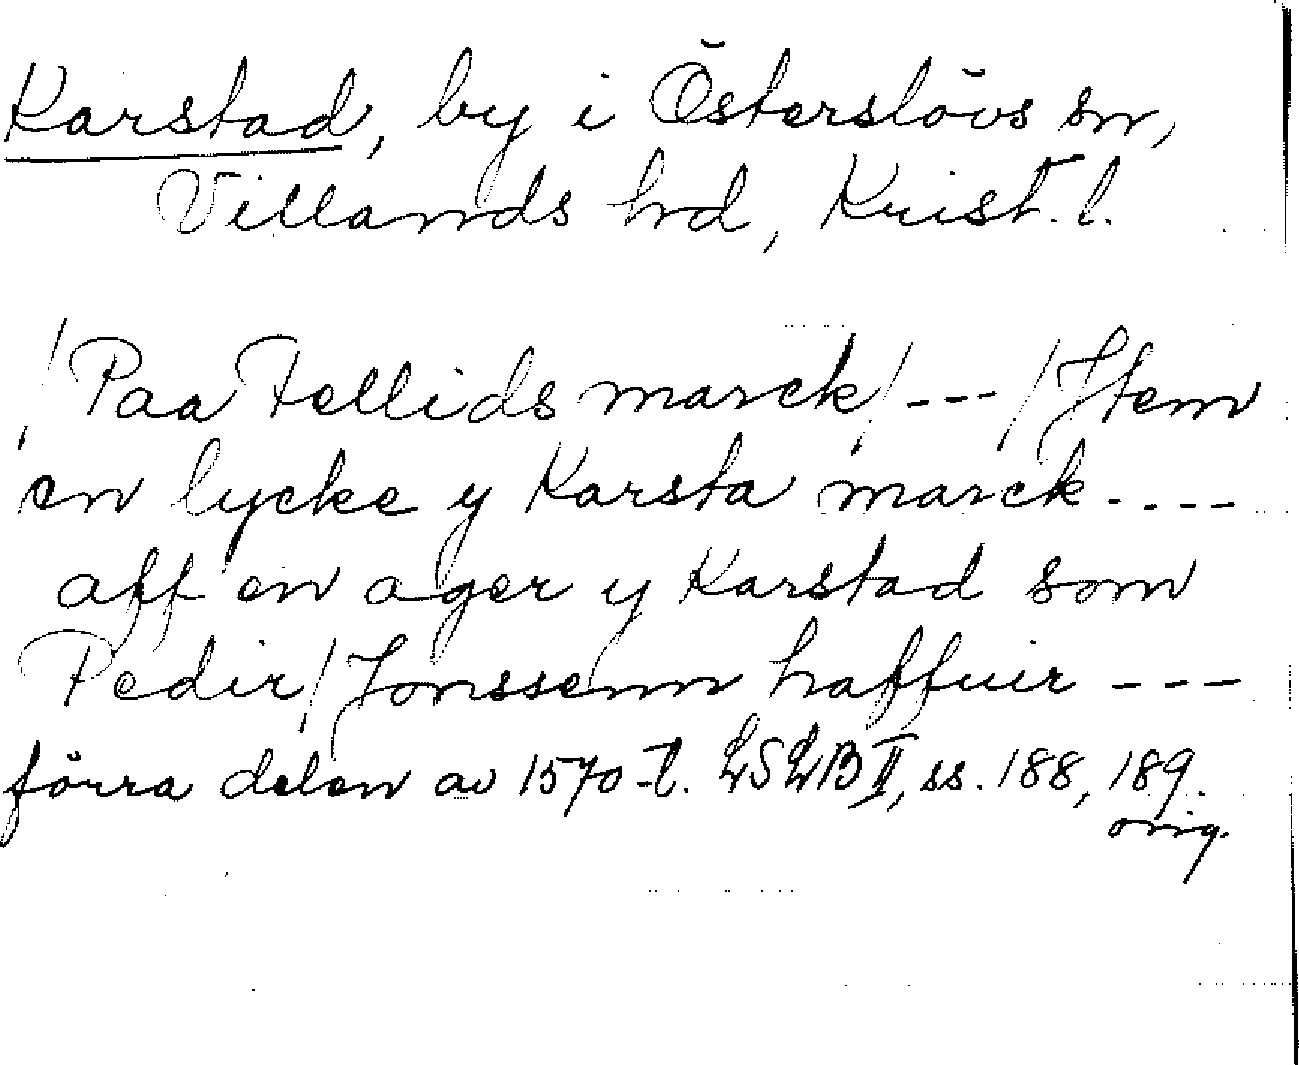 Karstad, by i Österslövs sn,
Villands hd, Krist. l.
/Paa Fellids marck/ --- / Jtem
en lycke y Karsta marck ----
aff en ager y Karstad som
Pedir/Jonssenn haffuir ---
förra delen av 1570-t. LSLB II, ss. 188, 189.
orig.